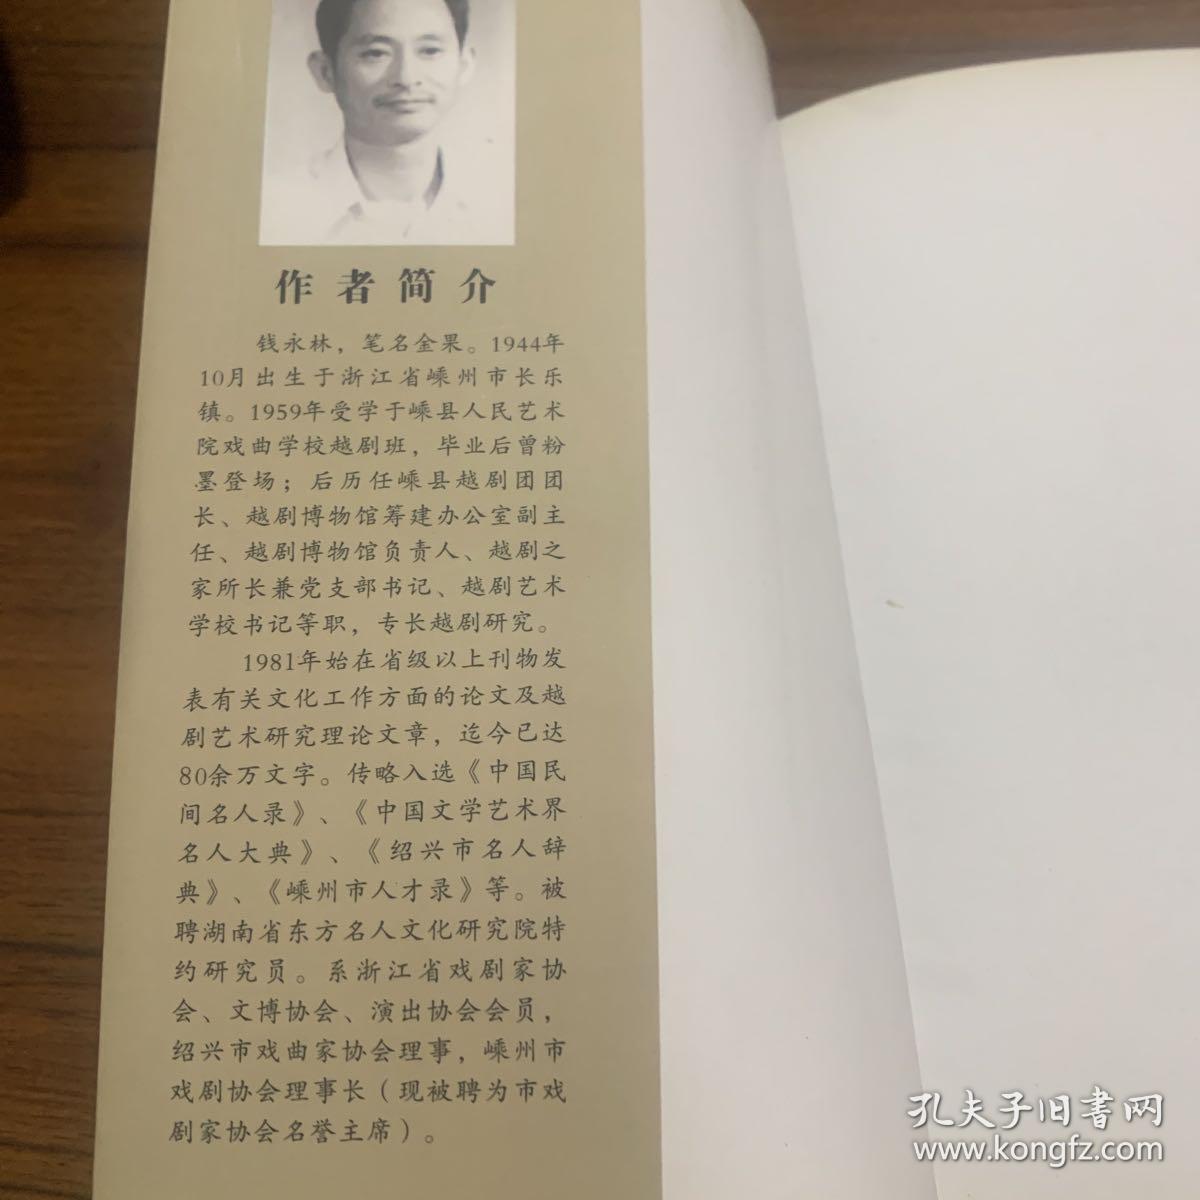 作者简介
钱永林，笔名金果。1944年
10月出生于浙江省嵊州市长乐
镇。1959年受学于嵊县人民艺术
院戏曲学校越剧班，毕业后曾粉
墨登场；后历任嵊县越剧团团
长、越剧博物馆筹建办公室副主
任、越剧博物馆负责人、越剧之
家所长兼党支部书记、越剧艺术
学校书记等职，专长越剧研究。
1981年始在省级以上刊物发
表有关文化工作方面的论文及越
剧艺术研究理论文章，迄今已达
80余万文字。传略入选《中国民
间名人录》、《中国文学艺术界
名人大典》、《绍兴市名人辞
典》、《嵊州市人才录》等。被
聘湖南省东方名人文化研究院特
约研究员。系浙江省戏剧家协
会、文博协会、演出协会会员，
绍兴市戏曲家协会理事，嵊州市
戏剧协会理事长（现被聘为市戏
剧家协会名誉主席）。
孔夫子旧书网
www.kongfz.com